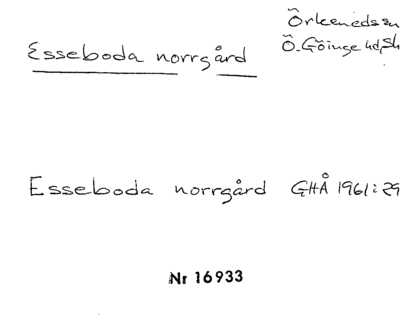 Örkeneds sn
Esseboda norrgård
Ö. Göinge hd, Sk
Esseboda norrgård GHÅ 1961:29
Nr 16933